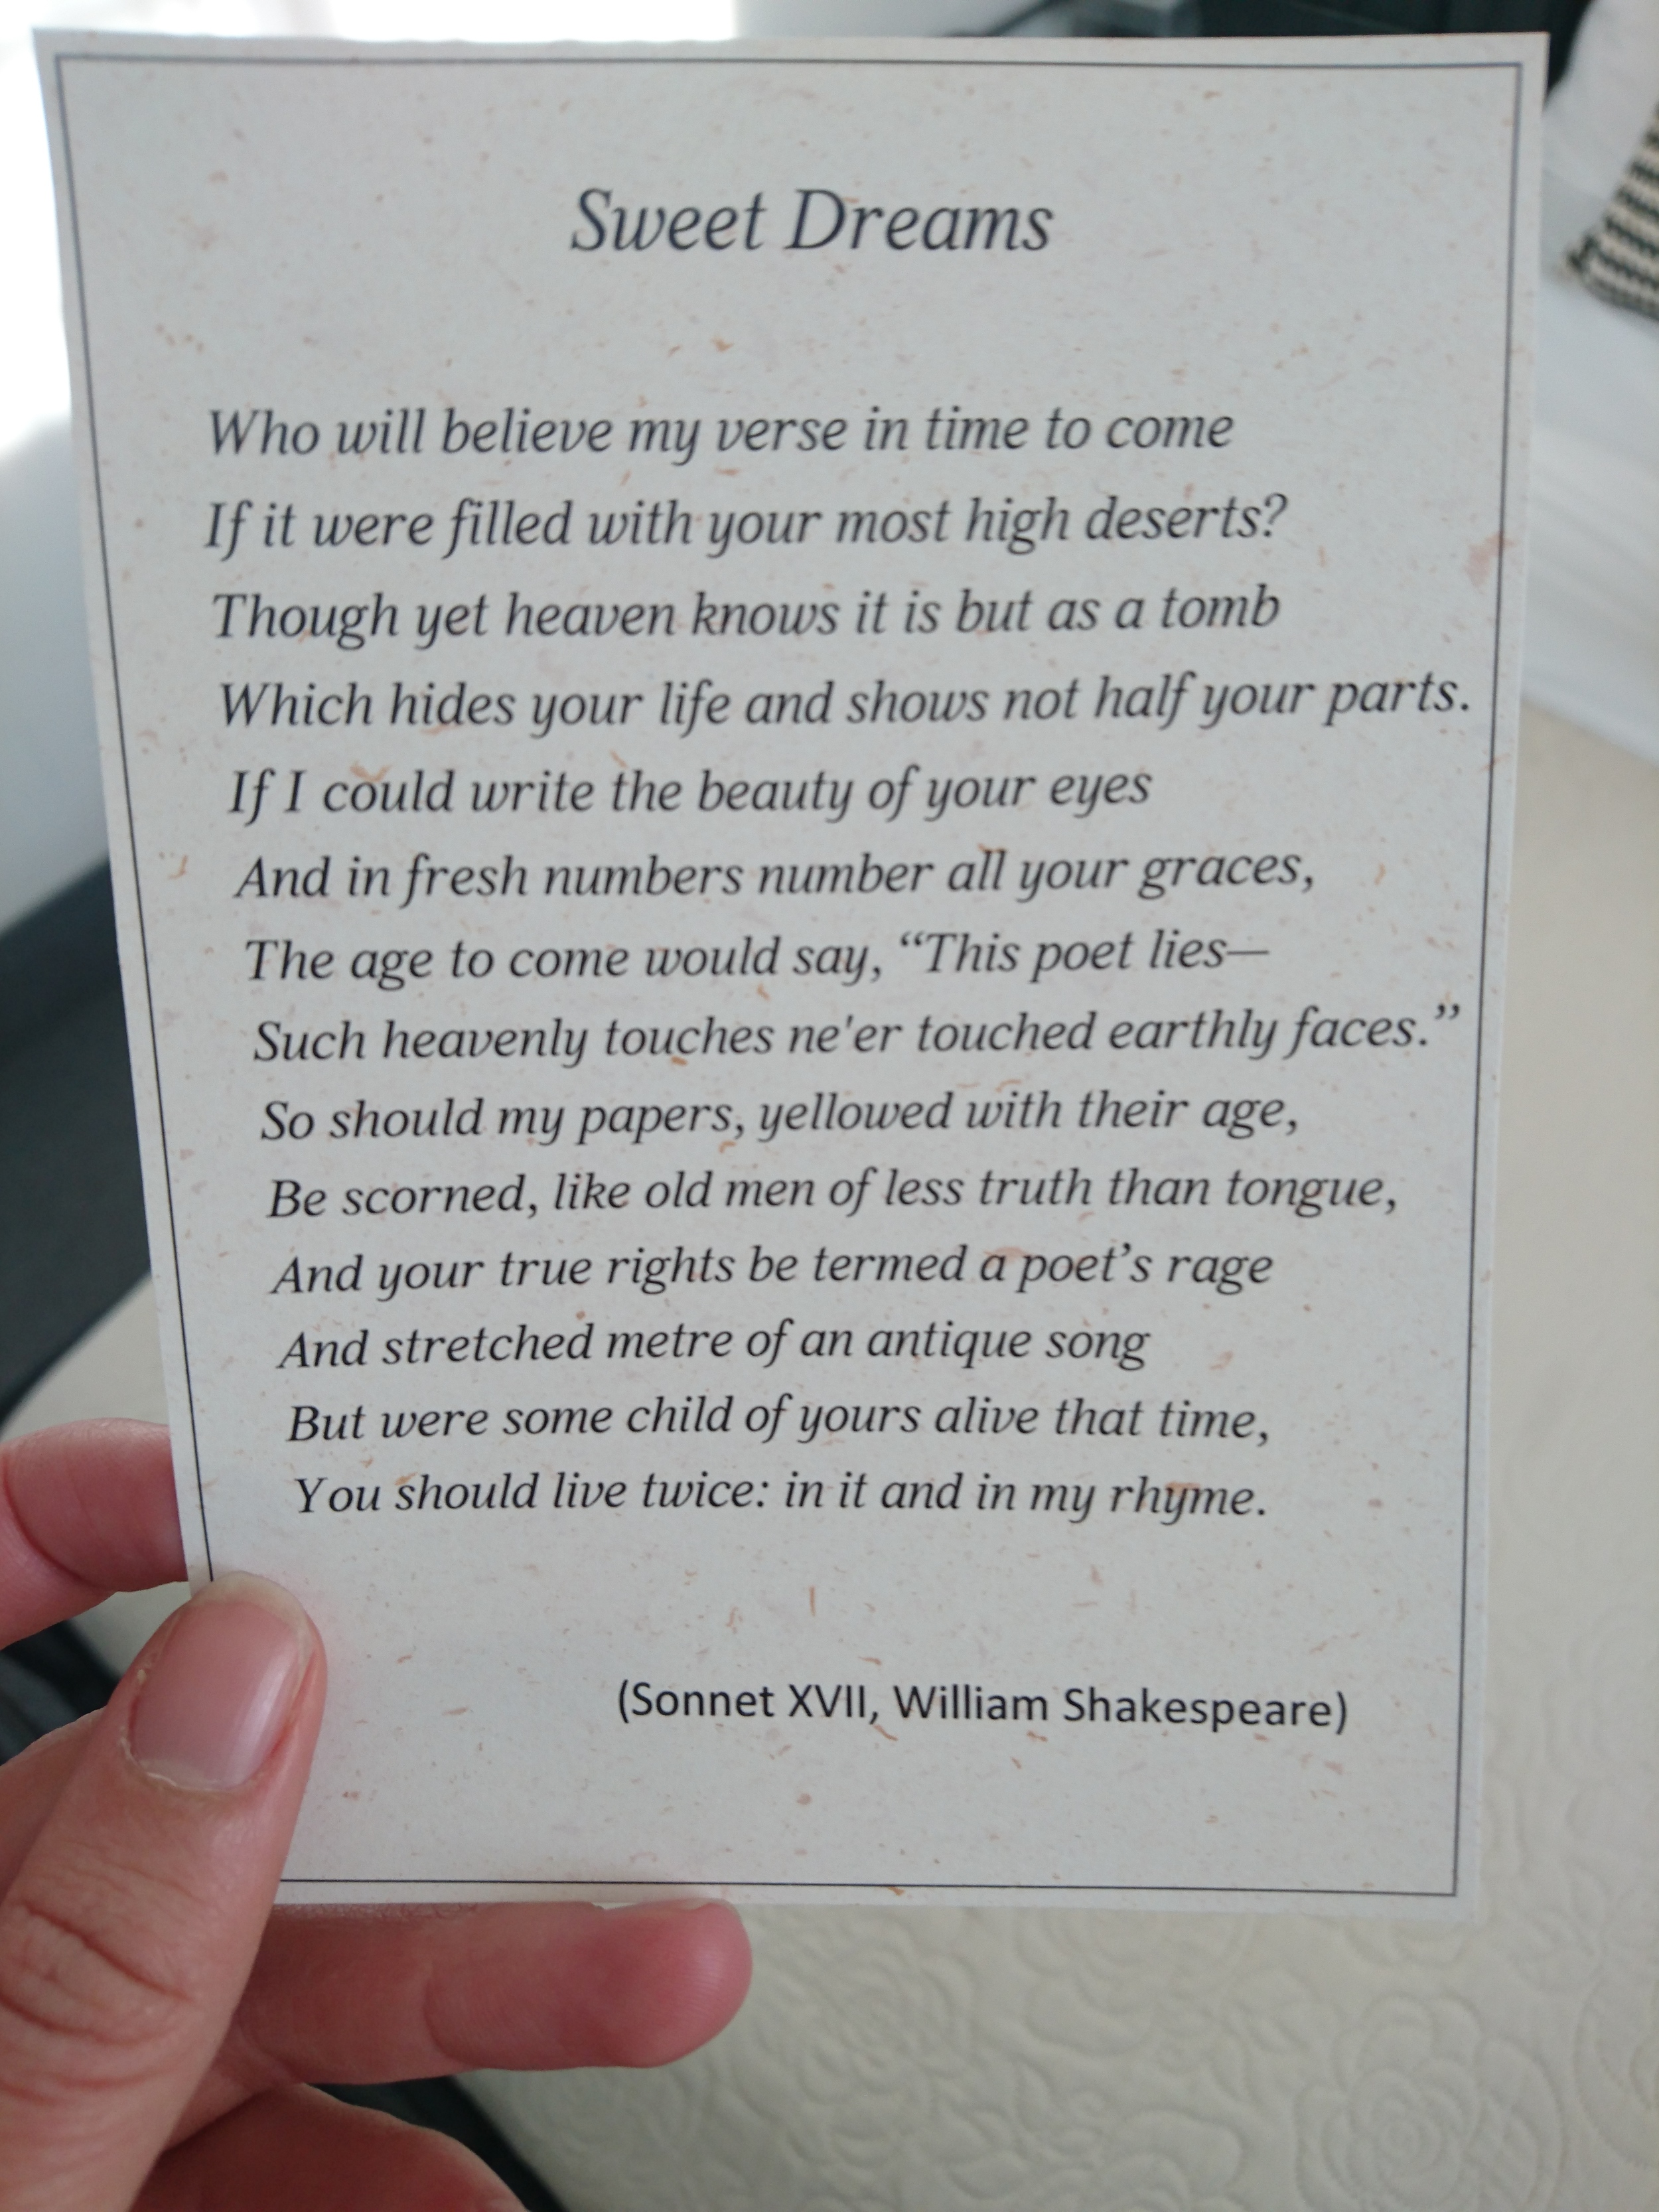 Sweet Dreams
Who will believe my verse in time to come
If it were filled with your most high deserts?
Though yet heaven knows it is but as a tomb
Which hides your life and shows not half your parts.
If I could write the beauty of your eyes
And in fresh numbers number all your graces,
The age to come would say, “This poet lies—
Such heavenly touches ne'er touched earthly faces.”
So should my papers, yellowed with their age,
Be scorned, like old men of less truth than tongue,
And your true rights be termed a poet’s rage
And stretched metre of an antique song
But were some child of yours alive that time,
You should live twice: in it and in my rhyme.
(Sonnet XVII, William Shakespeare)